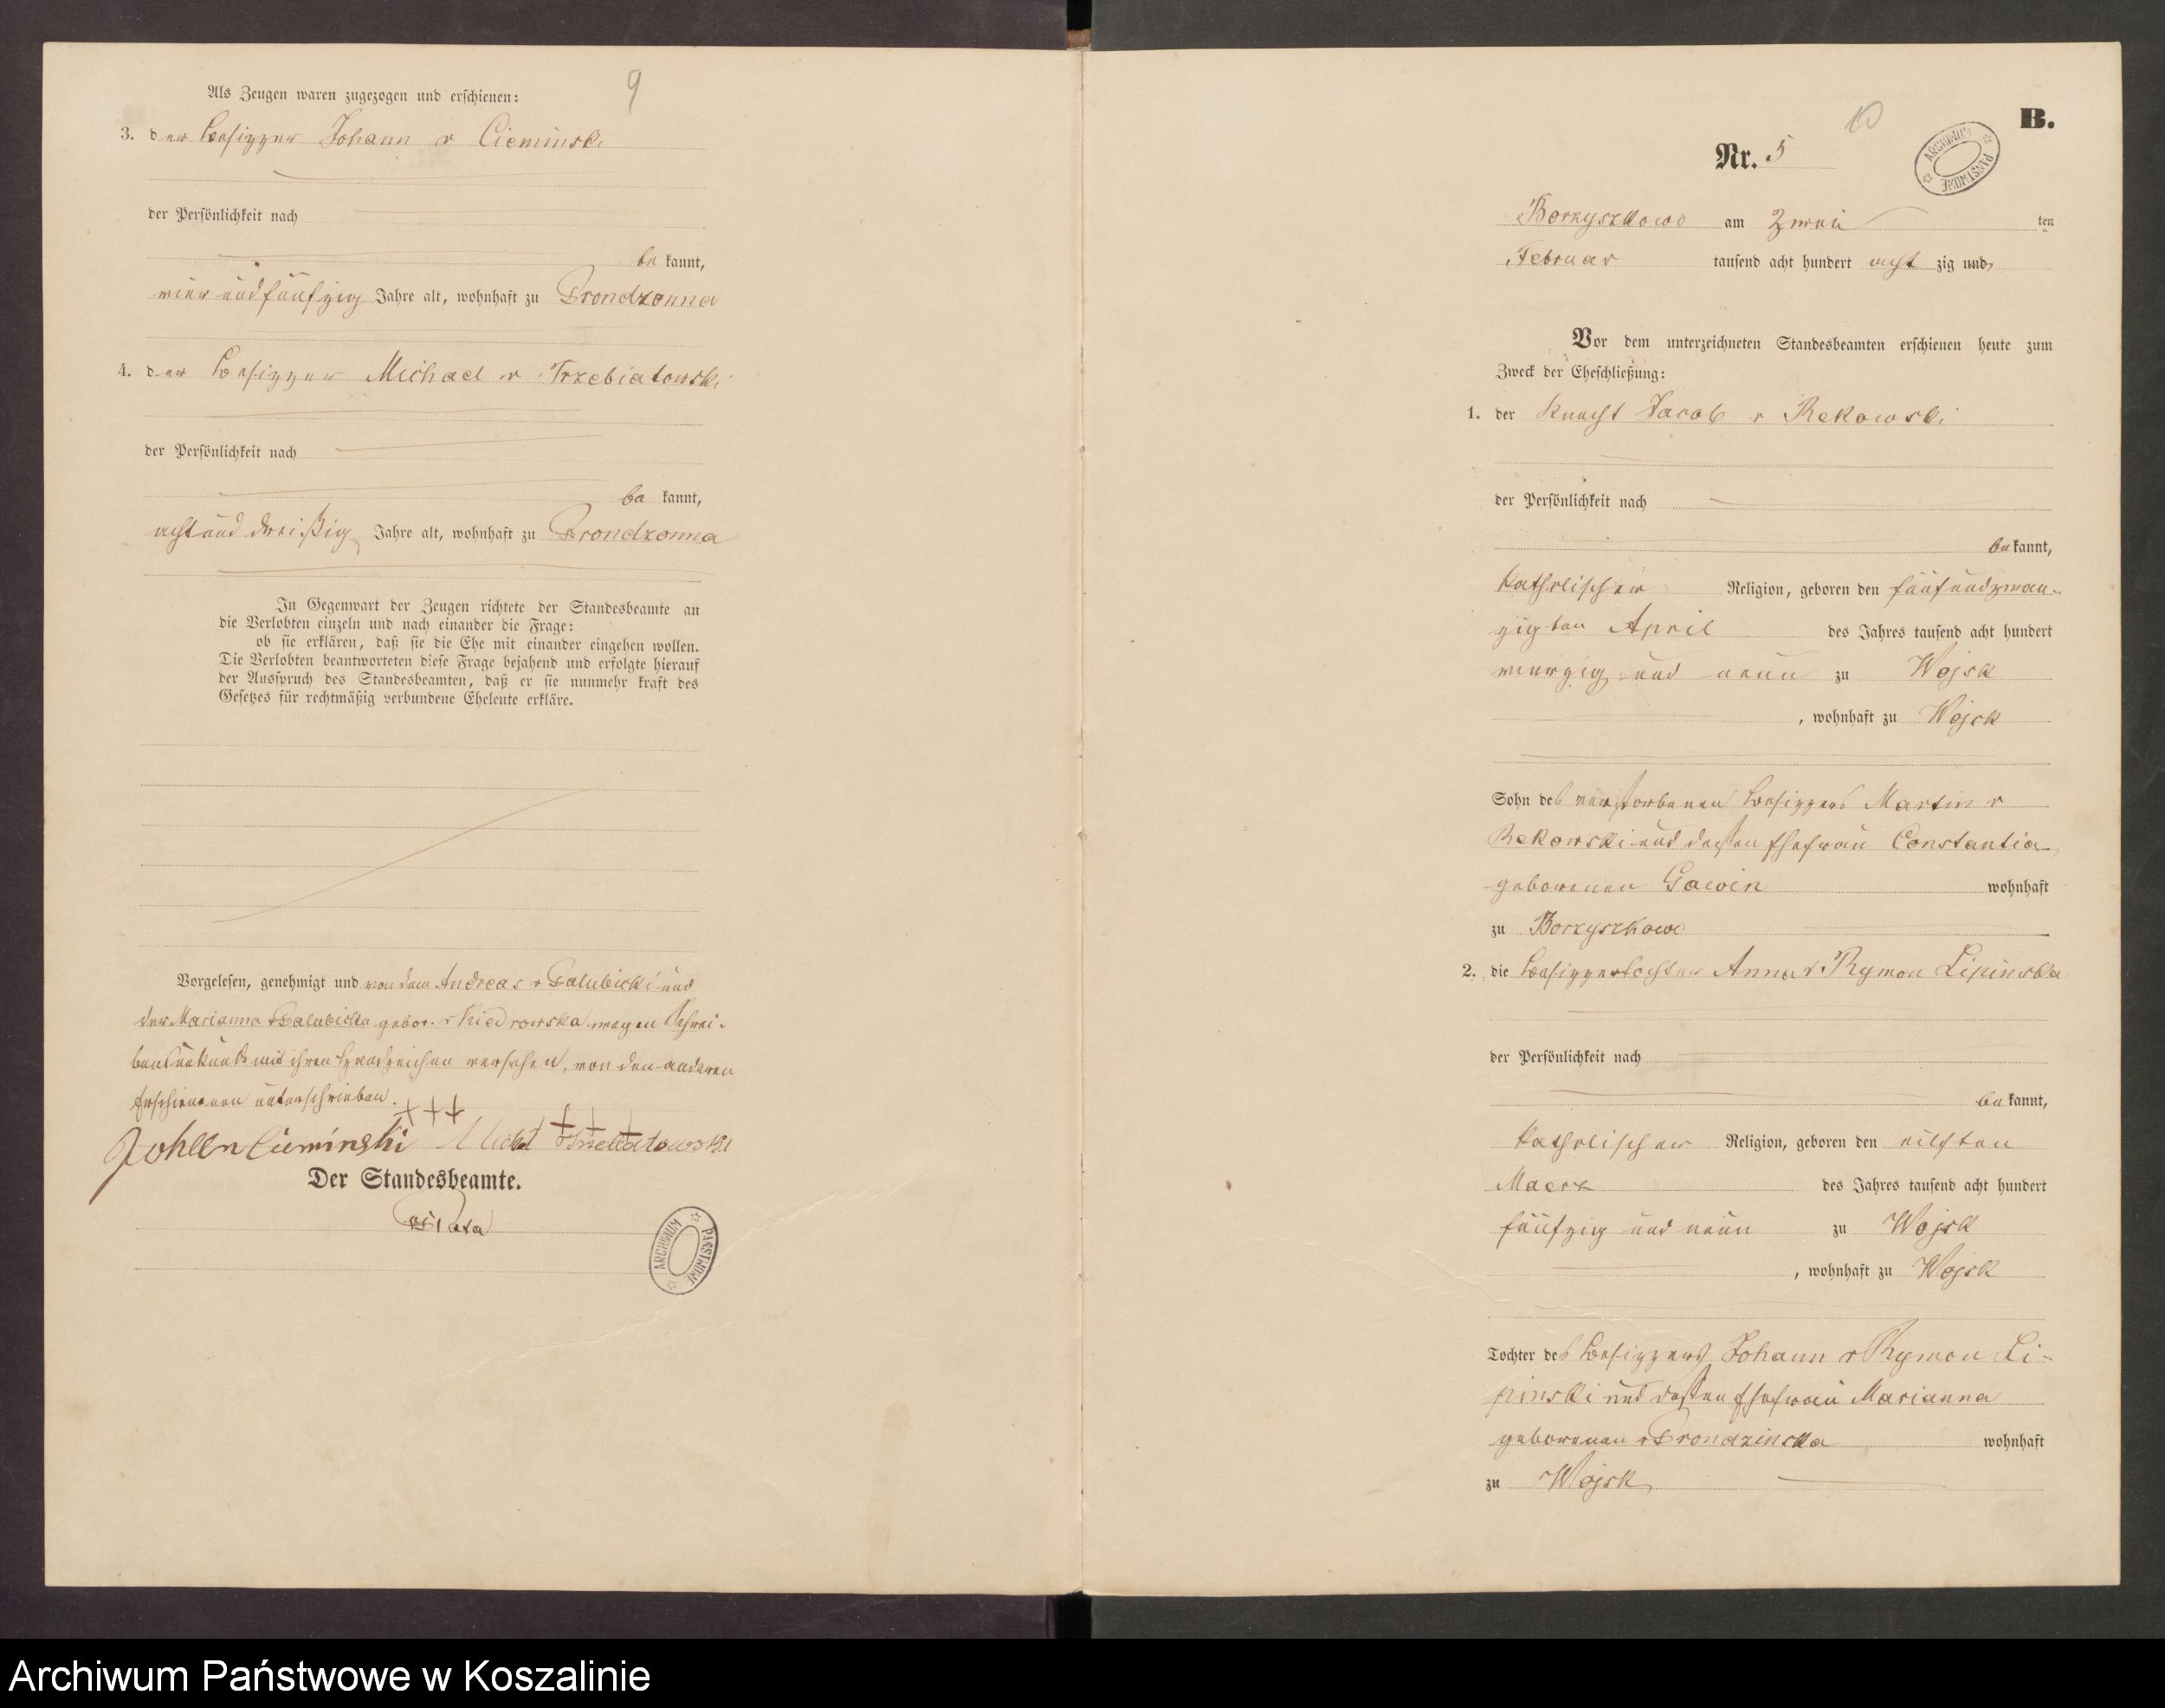 9
Als Zeugen waren zugezogen und erschienen:
3. der Besitzer Johann v Cieminski
der Persönlichkeit nach
be kannt,
vier und fünfzig Jahre alt, wohnhaft zu Prondzonna
4. der Besitzer Michael v Trzebiatowski
der Persönlichkeit nach
be kannt,
acht und dreißig Jahre alt, wohnhaft zu Prondzonna
In Gegenwart der Zeugen richtete der Standesbeamte an
die Verlobten einzeln und nach einander die Frage:
ob sie erklären, daß sie die Ehe mit einander eingehen wollen.
Die Verlobten beantworteten diese Frage bejahend und erfolgte hierauf
der Ausspruch des Standesbeamten, daß er sie nunmehr kraft des
Gesetzes für rechtmäßig verbundene Eheleute erkläre.
Vorgelesen, genehmigt und von dem Andreas v Palubicki und
der Marianna v Palubicka gebor. v Kiedrowska wegen Schrei-
bensunkunde mit ihren Handzeichen versehen, von den anderen
Erschienenen unterschrieben.
+++ +++
Johann Cieminski Michal v Trzebiatowski
Der Standesbeamte.
ARCHIWUM PAŃSTWOWE
10
B.
ARCHIWUM PAŃSTWOWE
Nr. 5
Borzyszkowo am zwei ten
Februar tausend acht hundert acht zig und
Vor dem unterzeichneten Standesbeamten erschienen heute zum
Zweck der Eheschließung:
1. der Knecht Jacob v Rekowski
der Persönlichkeit nach
be kannt,
katholischer Religion, geboren den fünfundzwan-
zigten April des Jahres tausend acht hundert
vierzig und neun zu Wojsk
, wohnhaft zu Wojsk
Sohn des verstorbenen Besitzers Martin v
Rekowski und dessen Ehefrau Constantia
geborenen Gawin wohnhaft
zu Borzyszkowo
2. die Besitzertochter Anna v. Rymon Lipinska
der Persönlichkeit nach
be kannt,
katholischer Religion, geboren den eilften
Maerz des Jahres tausend acht hundert
fünfzig und neun zu Wojsk
, wohnhaft zu Wojsk
Tochter des Besitzers Johann v Rymon Li-
pinski und dessen Ehefrau Marianna
geborenen v Prondzinska wohnhaft
zu Wojsk
Archiwum Państwowe w Koszalinie